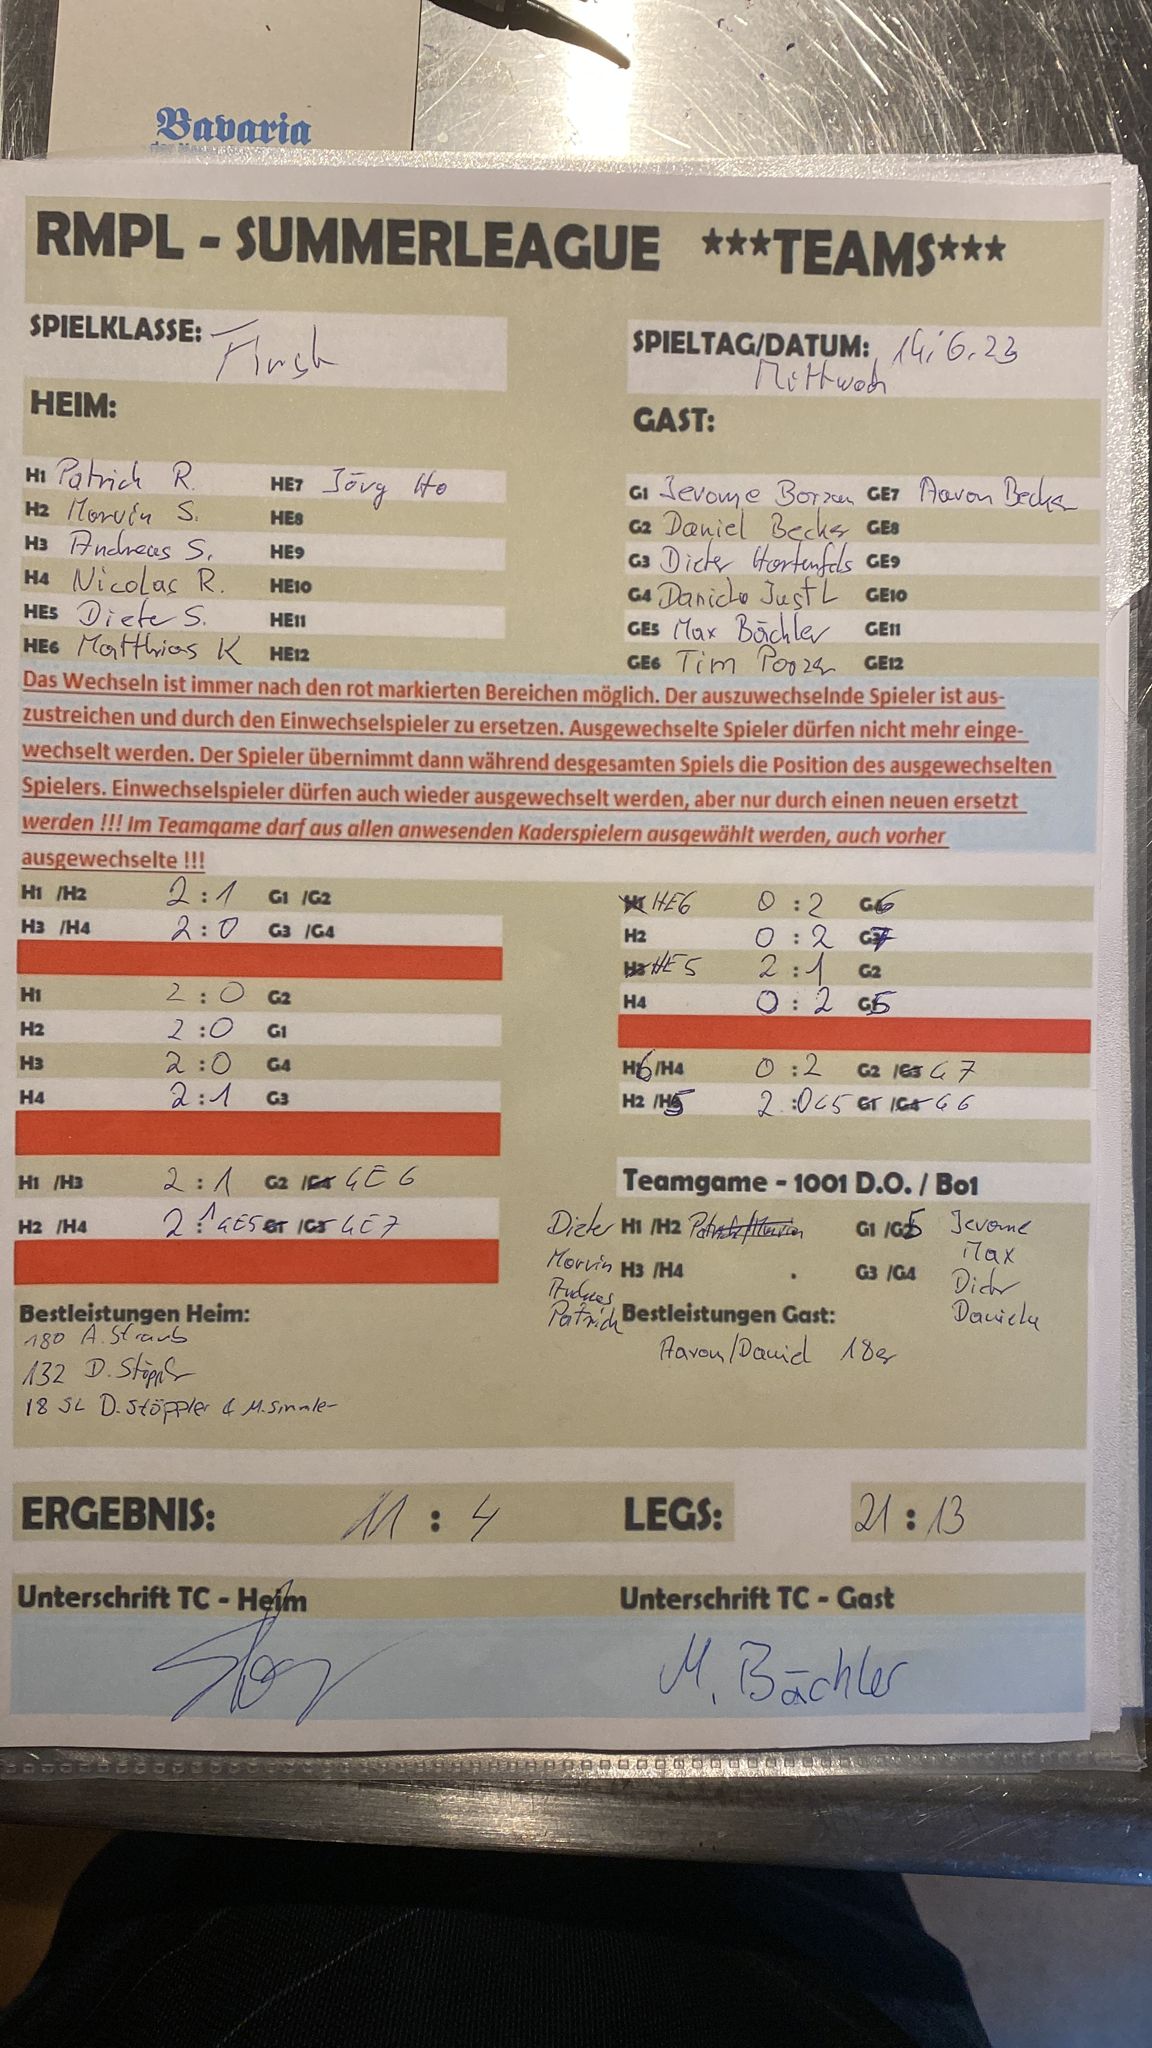 Bavaria
RMPL - SUMMERLEAGUE ***TEAMS***
SPIELKLASSE:
SPIELTAG/DATUM: 14.6.23
Mittwoch
HEIM:
GAST:
H1 Patrick R. HE7 Jörg Ho
H2 Marvin S. HE8
H3 Andreas S. HE9
H4 Nicolas R. HE10
HE5 Dieter S. HE11
HE6 Matthias K HE12
G1 Jerome GE7 Aaron Becker
G2 Daniel Becker GE8
G3 Dieter GE9
G4 GE10
GE5 Max Bächler GE11
GE6 Tim GE12
Das Wechseln ist immer nach den rot markierten Bereichen möglich. Der auszuwechselnde Spieler ist aus-
zustreichen und durch den Einwechselspieler zu ersetzen. Ausgewechselte Spieler dürfen nicht mehr einge-
wechselt werden. Der Spieler übernimmt dann während desgesamten Spiels die Position des ausgewechselten
Spielers. Einwechselspieler dürfen auch wieder ausgewechselt werden, aber nur durch einen neuen ersetzt
werden !!! Im Teamgame darf aus allen anwesenden Kaderspielern ausgewählt werden, auch vorher
ausgewechselte !!!
H1 /H2 2 : 1 G1 /G2
H3 /H4 2 : 0 G3 /G4
H1 2 : 0 G2
H2 2 : 0 G1
H3 2 : 0 G4
H4 2 : 1 G3
H1 /H3 2 : 1 G2 /G4 GE6
H2 /H4 2 : 1 GE5 G1 /G3 GE7
H1 HE6 0 : 2 G6
H2 0 : 2 G7
H3 HE5 2 : 1 G2
H4 0 : 2 G5
H6 /H4 0 : 2 G2 /G3 G7
H2 /H5 2 : 0 G5 G1 /G4 G6
Teamgame - 1001 D.O. / Bo1
Dieter H1 /H2 Patrick/Marvin G1 /G5 Jerome
Max
Marvin H3 /H4 G3 /G4 Dieter
Andreas
Patrick
Bestleistungen Heim:
180 A. Straub
132 D. Stöppler
18 SL D. Stöppler & M. Simmler
Bestleistungen Gast:
Aaron/Daniel 18er
ERGEBNIS: 11 : 4
LEGS: 21 : 13
Unterschrift TC - Heim
Unterschrift TC - Gast
M. Bächler